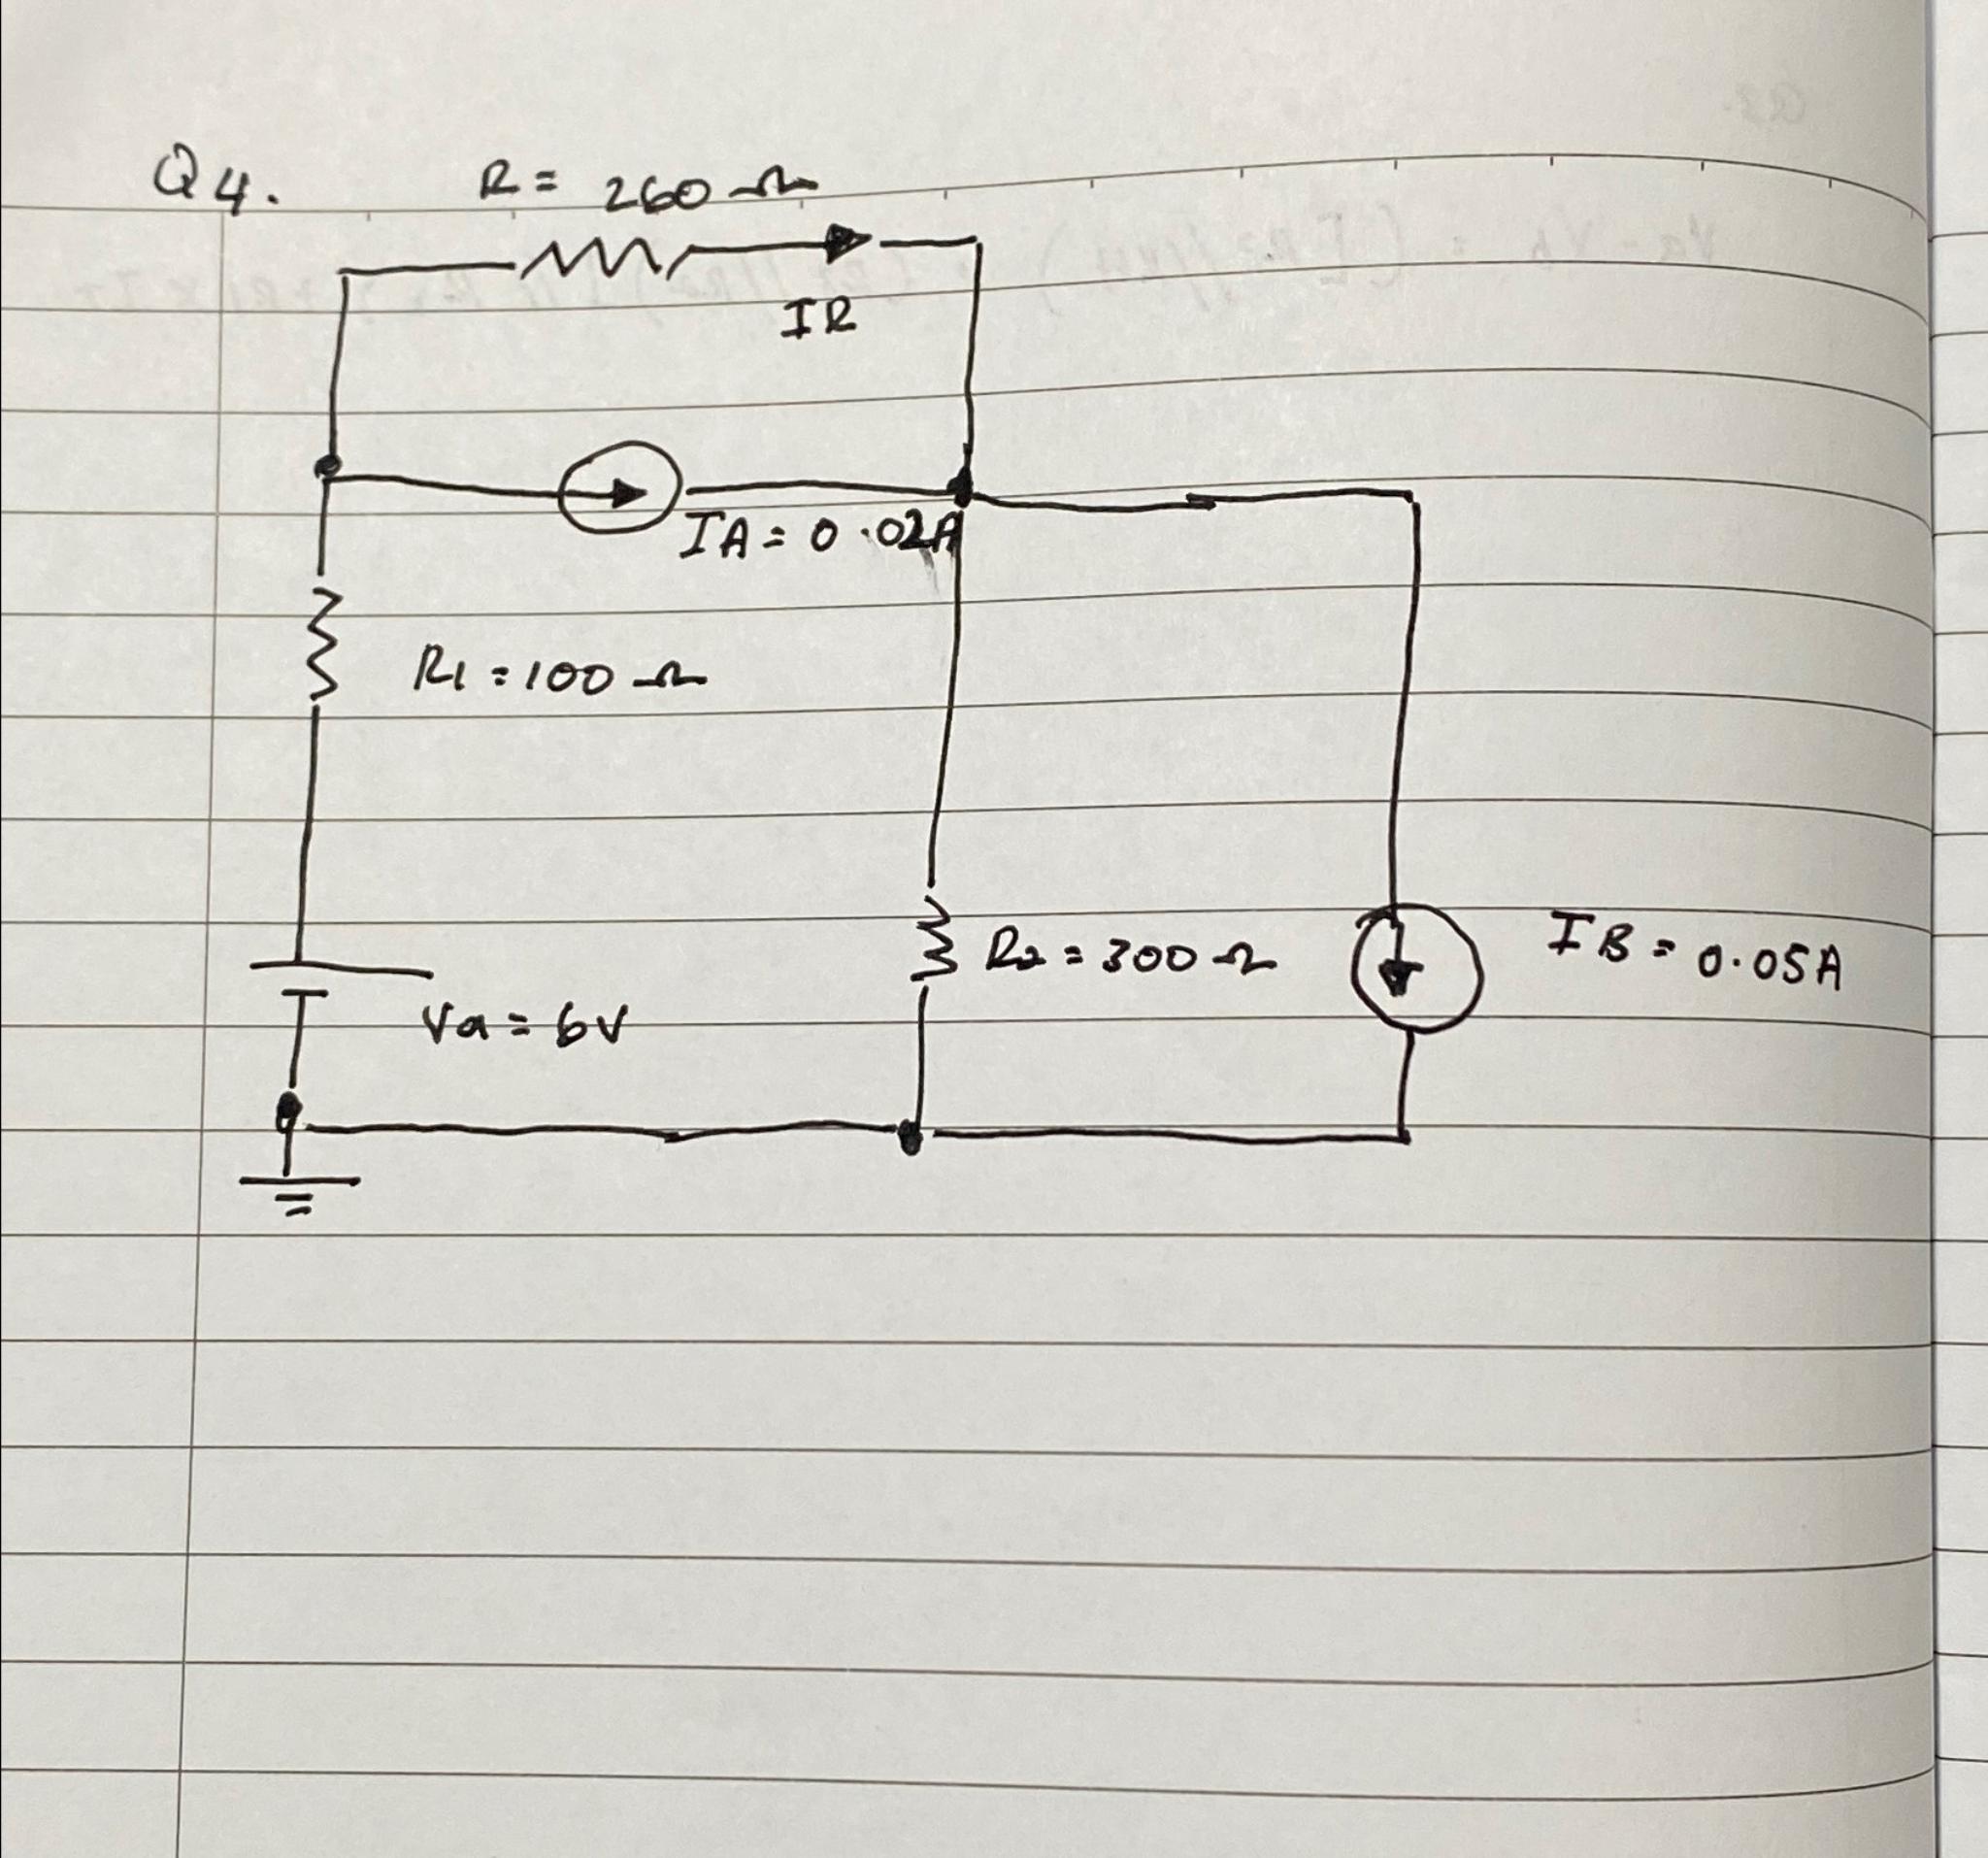 Q4.
R = 260 Ω
IR
IA = 0.02A
R1 = 100 Ω
R2 = 300 Ω
IB = 0.05A
Va = 6V